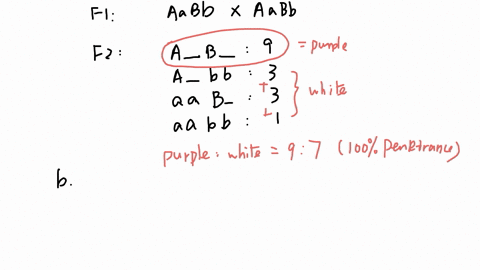 F1: AaBb x AaBb
F2: A_ B_ : 9 = purple
A_ bb : 3
+
aa B_ : 3 } white
+
aa bb : 1
purple : white = 9 : 7 (100% penetrance)
b.